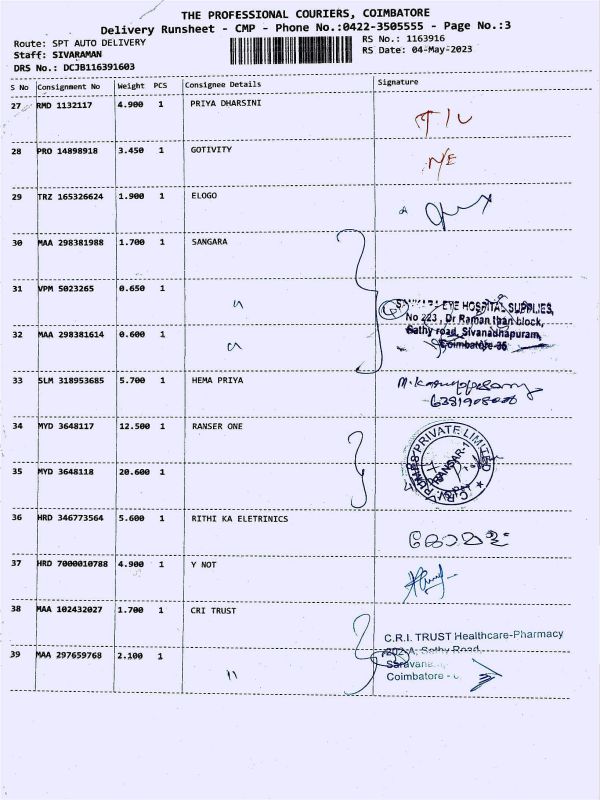 THE PROFESSIONAL COURIERS, COIMBATORE
Delivery Runsheet - CMP - Phone No.:0422-3505555 - Page No.:3
Route: SPT AUTO DELIVERY RS No.: 1163916
Staff: SIVARAMAN RS Date: 04-May-2023
DRS No.: DCJB116391603
S No Consignment No Weight PCS Consignee Details Signature
27 RMD 1132117 4.900 1 PRIYA DHARSINI
28 PRO 14898918 3.450 1 GOTIVITY N/E
29 TRZ 165326624 1.900 1 ELOGO
30 MAA 298381988 1.700 1 SANGARA
31 VPM 5023265 0.650 1 "
SANKARA EYE HOSPITAL SUPPLIES,
No 223 , Dr Raman than block,
32 MAA 298381614 0.600 1 "
Sathy road, Sivanandhapuram,
Coimbatore-35
33 SLM 318953685 5.700 1 HEMA PRIYA
34 MYD 3648117 12.500 1 RANSER ONE
PRIVATE LIMITED
35 MYD 3648118 20.600 1
36 HRD 346773564 5.600 1 RITHI KA ELETRINICS
37 HRD 7000010788 4.900 1 Y NOT
38 MAA 102432027 1.700 1 CRI TRUST
C.R.I. TRUST Healthcare-Pharmacy
39 MAA 297659768 2.100 1 "
Sathy Road
Coimbatore -